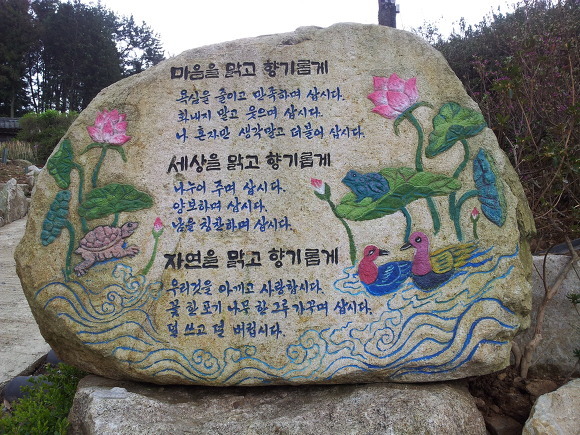 마음을 맑고 향기롭게
욕심을 줄이고 만족하며 삽시다.
화내지 말고 웃으며 삽시다.
나 혼자만 생각말고 더불어 삽시다.
세상을 맑고 향기롭게
나누어 주며 삽시다.
양보하며 삽시다.
남을 칭찬하며 삽시다.
자연을 맑고 향기롭게
우리것을 아끼고 사랑합시다.
꽃 한 포기 나무 한 그루 가꾸며 삽시다.
덜 쓰고 덜 버립시다.